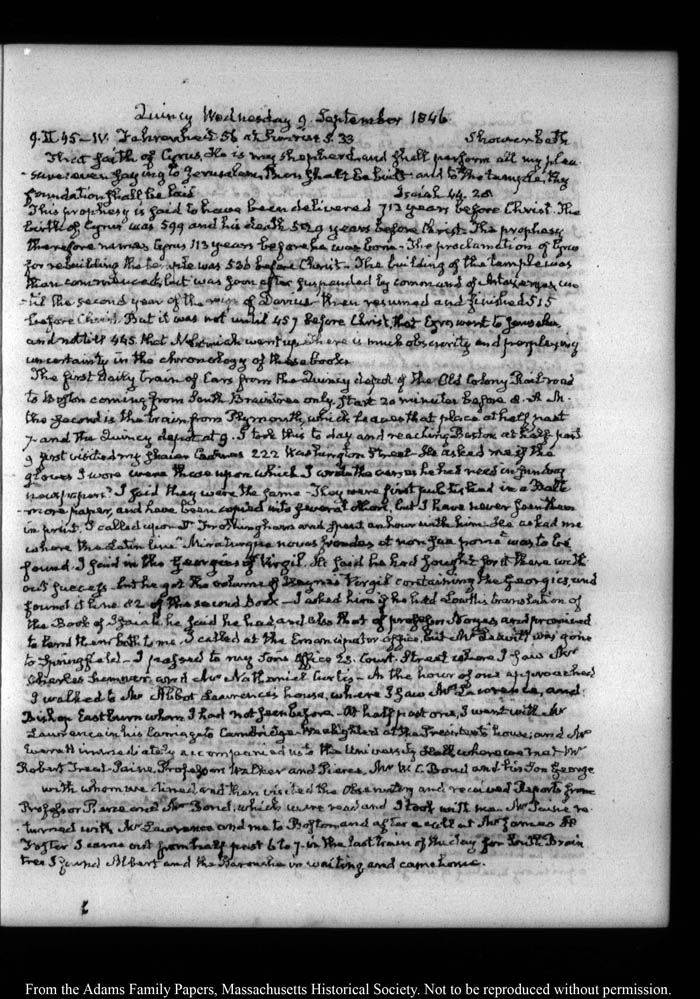 Quincy Wednesday 9. September 1846
9. II 45 – IV. Fahrenheit 56 at Sunrise 5.33 Shower bath
That saith of Cyrus, He is my shepherd, and shall perform all my plea-
-sure: even saying to Jerusalem, Thou shalt be built and to the temple, thy
foundation shall be laid Isaiah 44. 28.
This prophesy is said to have been delivered 713 years before Christ. The
birth of Cyrus was 599 and his death 529 years before Christ. The prophesy
therefore names Cyrus 113 years before he was born – The proclamation of Cyrus
for rebuilding the temple was 536 before Christ – The building of the temple was
then commenced, but was soon after suspended by command of Artaxerxes, un-
-til the second year of the reign of Darius then resumed and finished 515
before Christ. But it was not until 457 before Christ, that Ezra went to Jerusalem,
and not till 445. that Nehemiah went up. There is much obscurity and perplexing
uncertainty in the chronology of these books
The first daily train of Cars from the Quincy depot of the Old Colony Railroad
to Boston coming from South Braintree only, start 20 minutes before 8. A.M.
the second is the train from Plymouth, which leaves that place at half past
7. and the Quincy depot at 9. I took this to day and reaching Boston at half past
9 first visited my 222 Washington Street – He asked me if the
gloves I wore were those upon which I wrote the verses he had read in
newspapers? I said they were the same – They were first published in a Balti-
-more paper, and have been copied into several others, but I have never seen them
in print. I called upon Dr Frothingham and spent an hour with him. He asked me
where the Latin line "Miraturque novas frondes et non sua poma" was to be
found. I said in the Georgics of Virgil. He said he had sought for it there with
out success. but he got the volume of Heyne's Virgil containing the Georgics, and
found it line 82 of the second Book – I asked him if he had Lowth's translation of
the Book of Isaiah he said he had and also that of professor Noyes and promised
to lend them both to me. I called at the Emancipator office, but Mr Leavitt was gone
to Springfield – I passed to my Sons Office 23. Court. Street where I saw Mr
Charles Sumner, and Mr Nathaniel Curtis – As the hour of one approached
I walked to Mr Abbot Lawrence's house, where I saw Mrs Lawrence, and
Bishop Eastburn whom I had not seen before – At half past one, I went with Mr
Lawrence in his carriage to Cambridge. We alighted at the President's house, and Mr
Everett immediately accompanied us to the University Hall where we met Mr
Robert Treat Paine, Professors Walker and Pierce, Mr W. C. Bond and his Son George
with whom we dined, and then visited the Observatory and received Reports from
Professor Pierce and Mr Bond, which were read and I took with me. Mr Paine re-
-turned with Mr Lawrence and me to Boston and after a call at Mr James H
Foster I came out from half past 6 to 7. in the last train of the day for South Brain
tree I found Albert and the Barouche in waiting and came home.
From the Adams Family Papers, Massachusetts Historical Society. Not to be reproduced without permission.